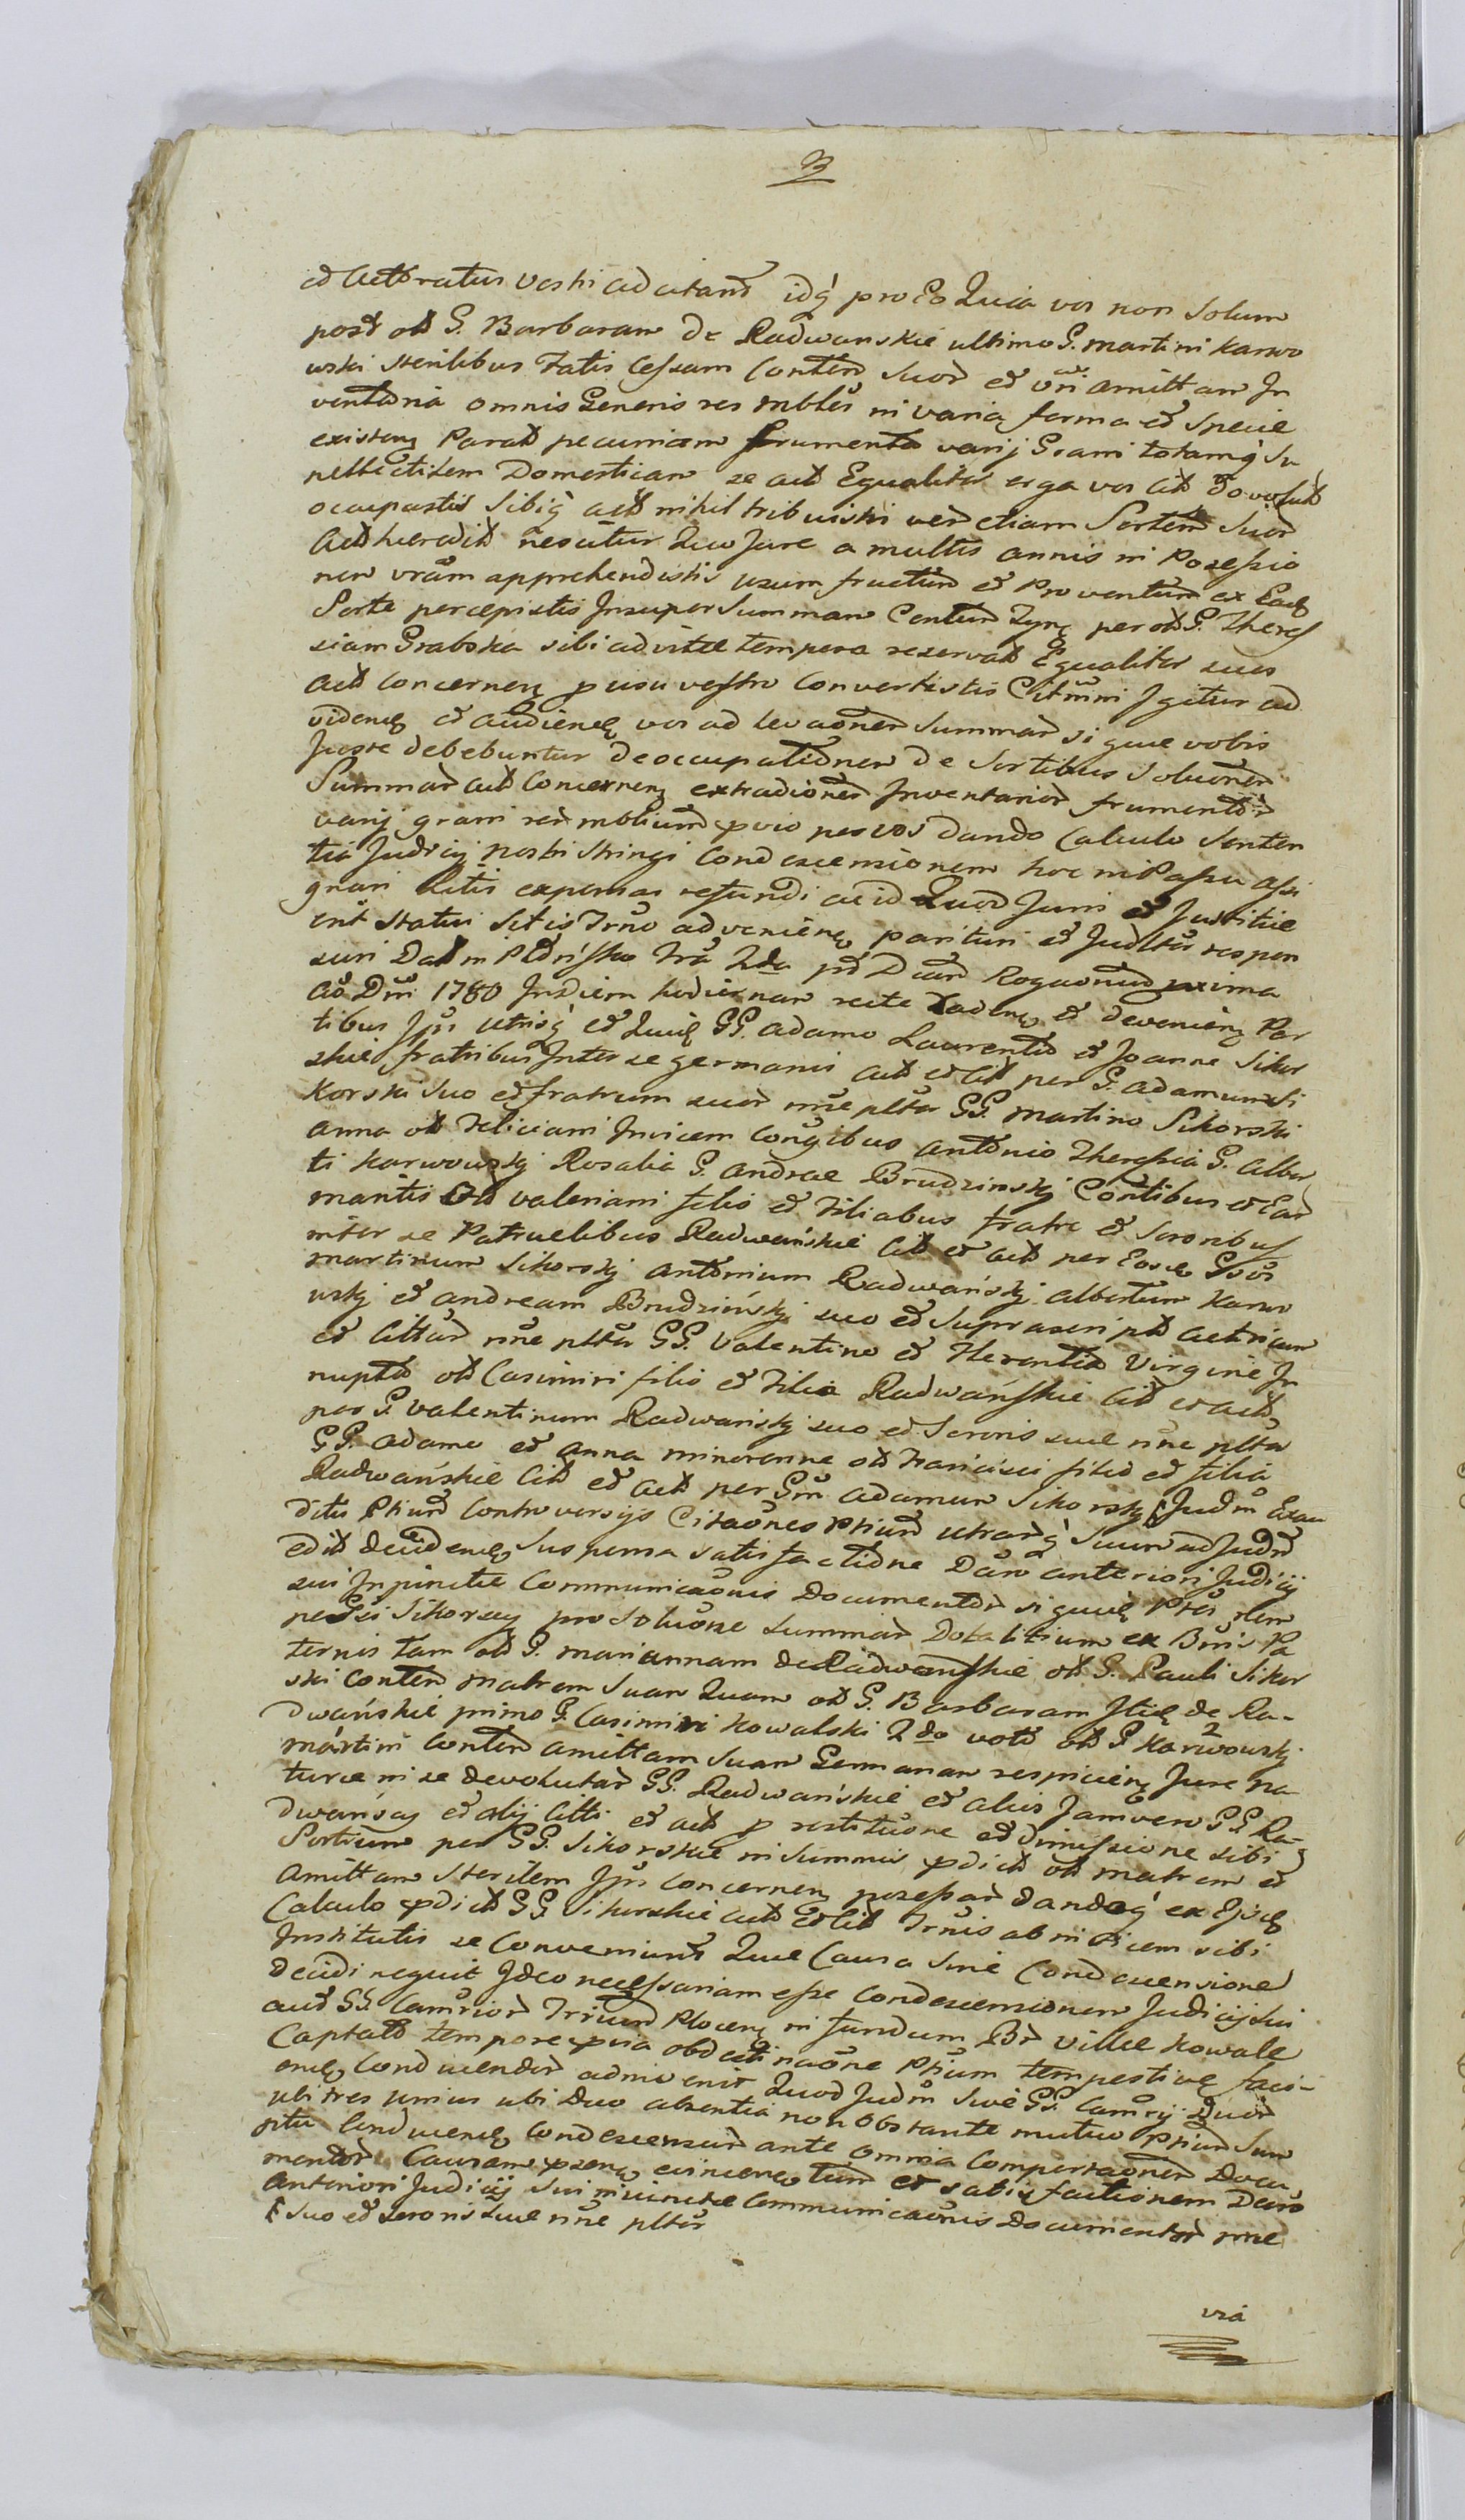 3
ed Actoratus vestri ad citand idq pro Eo Quia vos non solum
post olt G. Barbaram De Radwanskie ultimo G. Martini Karwo
wski sterilibus Fatis Cessam Conten suor ed amittam In
ventaria omnis Generis res mbles in varia forma ed specie
existen Parat pecuniam Frumenta varij Grani totamq Su
pellectilem Domesticam se act Equaliter erga vos cit Devolut
occupastis Sibiq act nihil tribuisti ver etiam Sortem suor
Act haeredit nescitur Quo Jure a multis annis in Posessio
nem vram apprehendistis usum fructum ed Proventum ex Ead
Sorte percepistis Insuper Summam Centum per olt G. Theres
siam Grabska sibi ad vitae tempora reservat Equaliter sues
act Concernen p usu vestro Convertistis Citmini Igitur ad
vidend ed audiend vos ad levaonem Summar si quae vobis
Juste debebuntur deoccupationem de Sortibus Soluonem
Summar act Concernen extradionem Inventarior frumentor
varij grani rer mblium pvio per vos dando Calculo Senten
tia Judicij nostri stringi Condescensionem hoc in Passu assi
gnari Litis expensas refundi ac id Quod Juri ed Justitiae
erit statui Sitis Trno advenien parituri ed Judltr respon
suri Dat in Fra 2da pt Dcam Rogaonum pxima
Ao Dni 1780 In diem hodiernam recte Caden ed devenien Par
tibus Ipis utrisq ed Quib GG. Adamo Laurentio ed Joanne Sikor
skie fratribus Inter se germanis act ed cit per G. Adamum Si
korski suo ed fratrum suor nne pltr GG. Martino Sikorski
Anna olt Feliciani Invicem Coniugibus Antonio Theressia G. Alber
ti Karwowskij Rosalia G. Andreae Brudzinskij Contibus ed Ear
maritis Olt Valeriani filio ed Filiabus fratre ed Sororibus
inter se Patruelibus Radwańskie cit ed act per Eosd Gsos
Martinum Sikorskij Antonium Radwańskij Albertum Karwo
wskij ed Andream Brudzińskij suo ed suprascript actricum
ed Cittar nne pltr GG. Valentino ed Virgine In
nupta olt Casimiri filio ed Filia Radwańskie cit ed act
per G. Valentinum Radwańskij suo ed Sororis suae nne pltr
GG. Adamo ed Anna minorenne olt Francisci filio ed filia
Radwańskie cit ed act per Gm Adamum Sikorskij Judm Exau
ditis Ptium Controversijs Citaones Ptium utrarq Suum ad Judm
edit decidend Suspensa satisfactione Dcro anteriori Judicij
sui In puncto Communicaonis Documentor siquid
Gsi Sikorscy pro Soluone summar Dotalitium ex Bnis Pa
ternis tam olt G. Mariannam de Radwanskie olt G. Pauli Sikor
ski Conten Matrem suam Quam olt G. Barbaram Itid de Ra-
dwańskie primo G. Casimiri Kowalski 2do voto olt G. Karwowskij
Martini Conten amittam suam Germanam respicien Jure Na
turae in se devolutar GG. Radwańskie ed alios Jam vero GG. Ra-
dwańscy ed alij Citti ed act p restituone ed dimissione sibi
Sortium per GG. Sikorskie in summis pdict olt Matrem ed
Amittam sterilem Ipis Concernen posessar dandoq ex Ijsd
Calculo pdict GG. Sikorskie act ed cit Trnis ab invicem sibi
Institutis se Conveniunt Quae Causa sine Condescensione
decidi nequit Ideo necessariam esse Condescensionem Judicij sui
aut GG. Camrior Trium Plocen in fundum Br villae Kowale
Captato tempore pvia obdestinaone Ptium tempestive faci-
end Conducendor admivenit Quod Judm sive GG. Camrij Quor
ubi tres unius ubi duo absentia non obstante mutuo Ptium Sum
ptu Conducend Condescensur ante omnia Comportaonem Docu
mentor Causam psen evincen tum ed satisfactionem Dcro
Anteriori Judicij sui in puncto Communicaonis Documentor nne
suo ed Sororis suae nne pltr
via